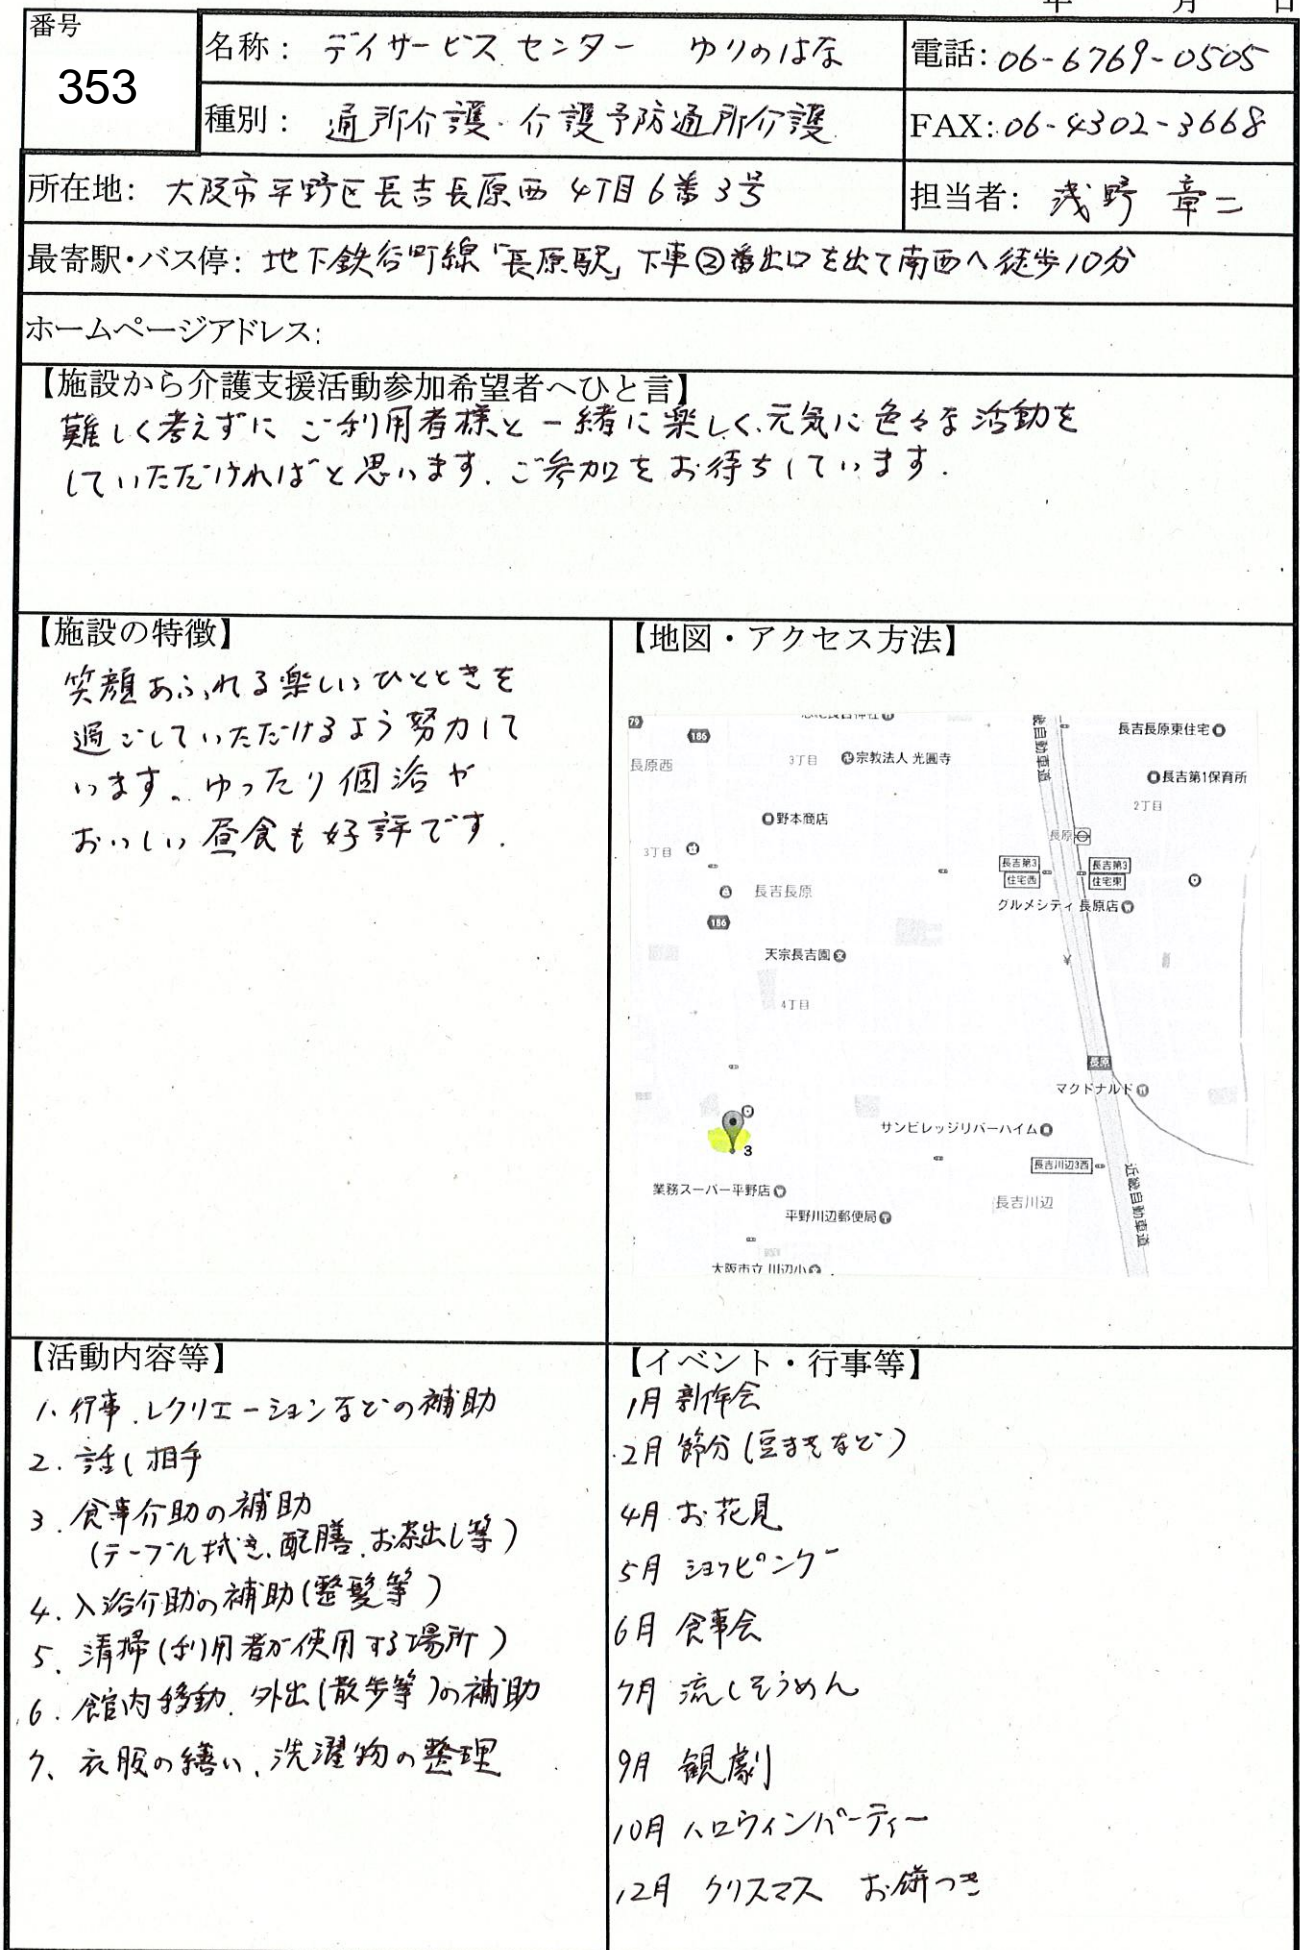 年 月 日
番号
353
名称： デイサービスセンター ゆりのはな
電話：06-6769-0505
種別： 通所介護・介護予防通所介護
FAX：06-4302-3668
所在地： 大阪市平野区長吉長原西4丁目6番3号
担当者： 浅野 章二
最寄駅・バス停： 地下鉄谷町線「長原駅」下車②番出口を出て南西へ徒歩10分
ホームページアドレス：
【施設から介護支援活動参加希望者へひと言】
難しく考えずにご利用者様と一緒に楽しく、元気に色々な活動を
していただければと思います。ご参加をお待ちしています。
【施設の特徴】
笑顔あふれる楽しいひとときを
過ごしていただけるよう努力して
います。ゆったり個浴や
おいしい昼食も好評です。
【地図・アクセス方法】
79
186
長原西
3丁目
宗教法人 光圓寺
自動車道
長吉長原東住宅
長吉第1保育所
2丁目
野本商店
長原
3丁目
長吉第3
住宅西
長吉第3
住宅東
長吉長原
グルメシティ 長原店
186
天宗長吉園
4丁目
長原
マクドナルド
サンビレッジリバーハイム
3
長吉川辺3西
業務スーパー平野店
長吉川辺
近畿自動車道
平野川辺郵便局
大阪市立 川辺小
【活動内容等】
1、行事、レクリエーションなどの補助
2、話し相手
3、食事介助の補助
（テーブル拭き、配膳、お茶出し等）
4、入浴介助の補助（整髪等）
5、清掃（利用者が使用する場所）
6、館内移動、外出（散歩等）の補助
7、衣服の繕い、洗濯物の整理
【イベント・行事等】
1月 新年会
2月 節分（豆まきなど）
4月 お花見
5月 ショッピング
6月 食事会
7月 流しそうめん
9月 観劇
10月 ハロウィンパーティー
12月 クリスマス お餅つき